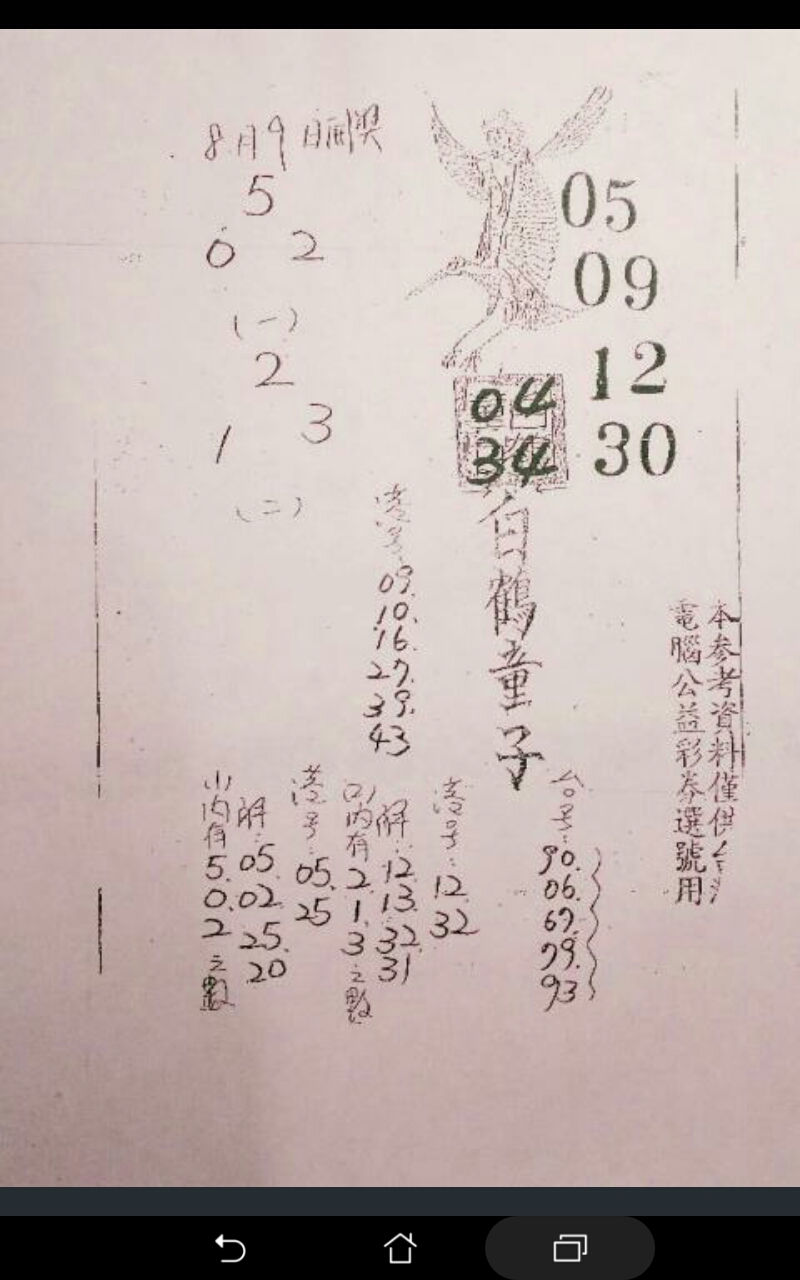 8月9日開獎
5
0 2
(一)
2
1 3
(二)
05
09
12
30
04
34
白鶴童子
本參考資料僅供
電腦公益彩券選號用
港号:
09.
10.
16.
27.
39.
43
台号:
90.
06.
67.
79.
93
港号:
12.
32
解:
12.
13.
32.
31
(2)內有2.1.3之數
港号:
05.
25
解:
05.
02.
25.
20
(1)內有5.0.2之數